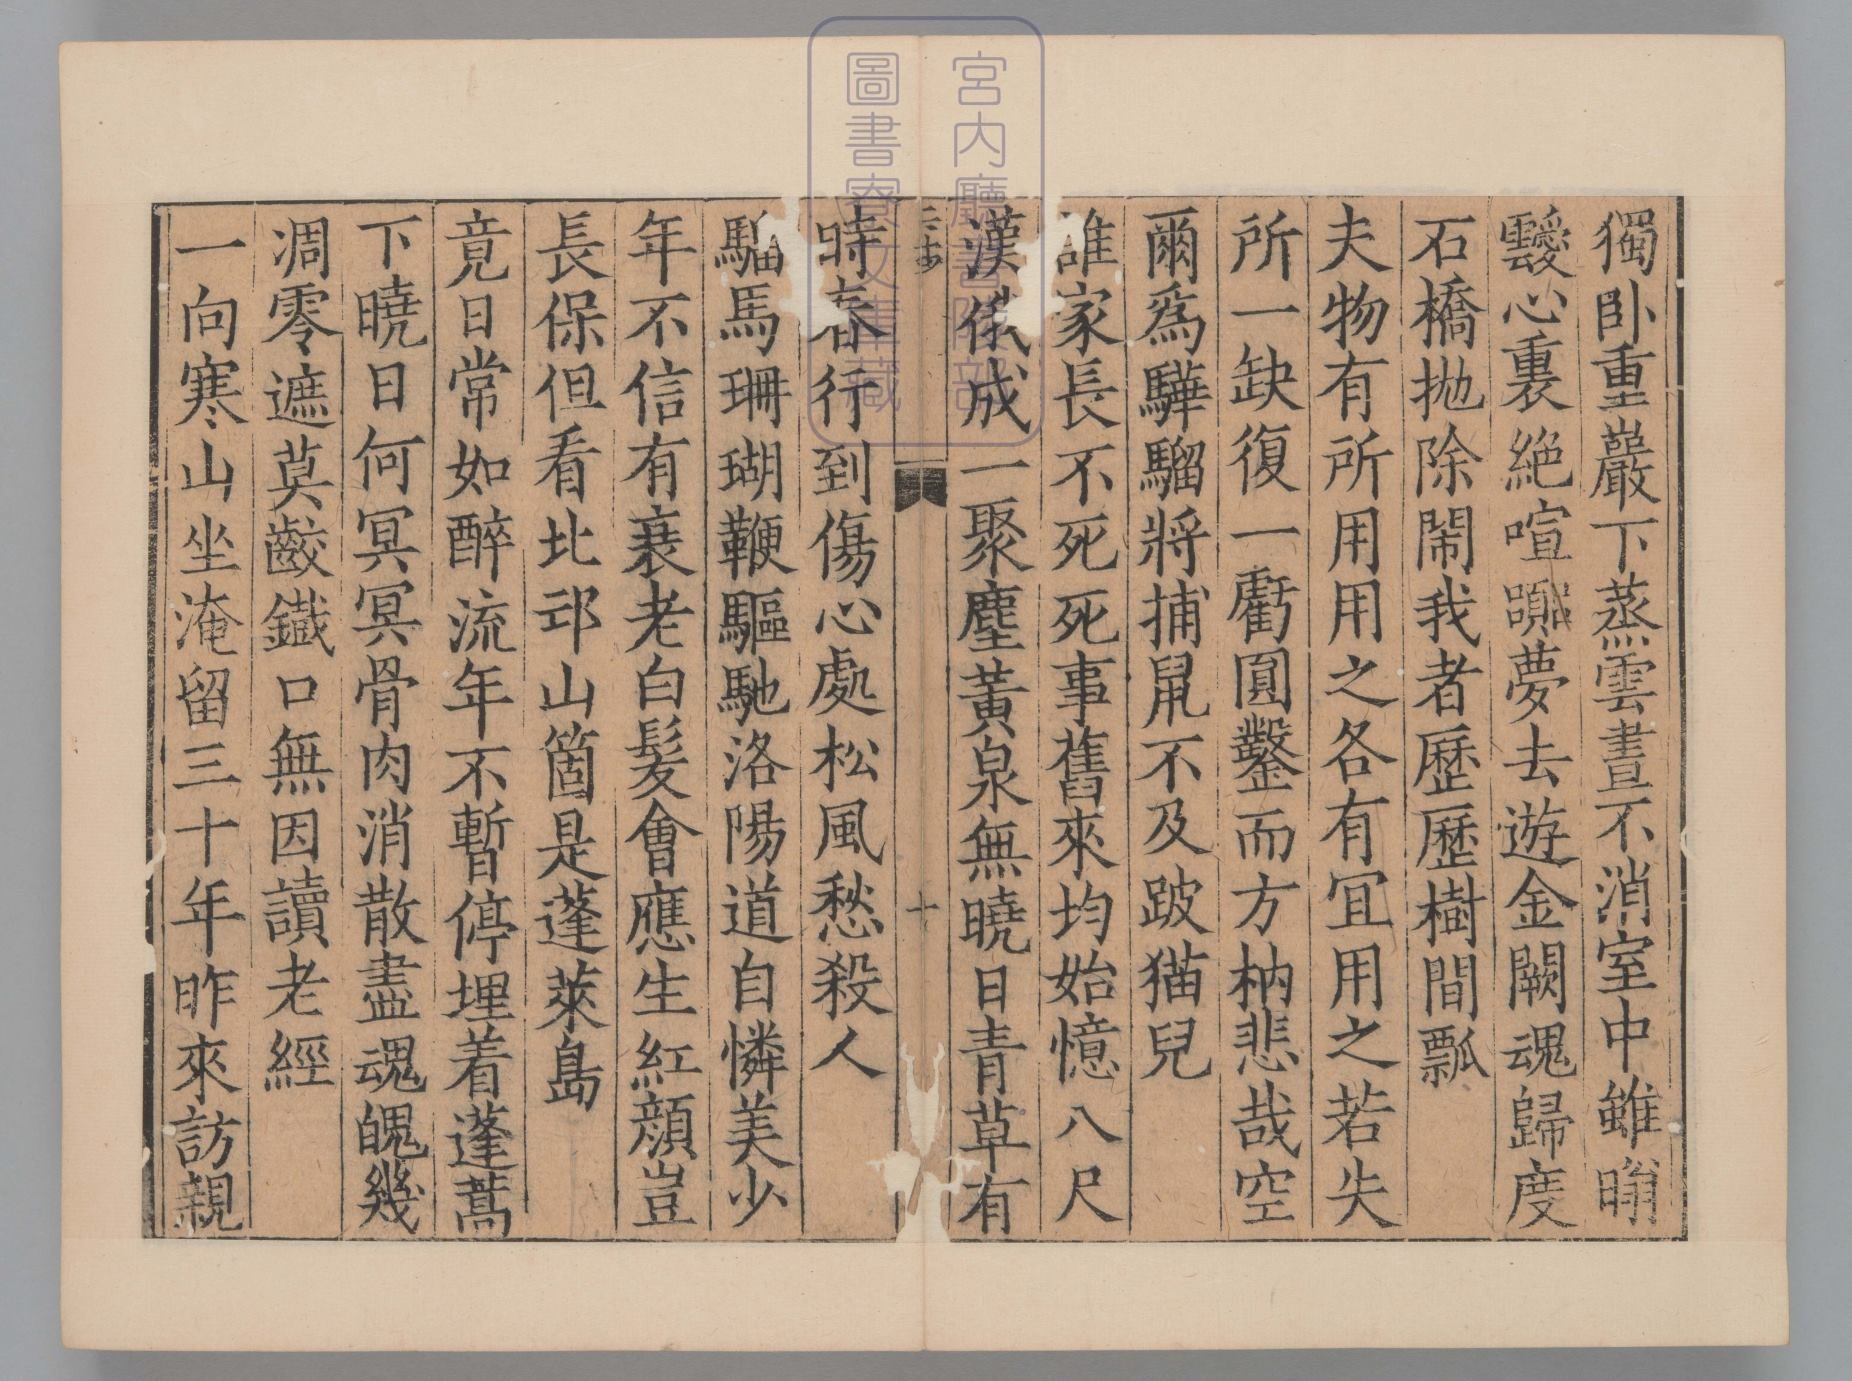 獨臥重巖下蒸雲晝不消室中雖暡
靉心裏絕喧囂夢去遊金闕魂歸度
石橋拋除鬧我者歷歷樹間瓢
夫物有所用用之各有宜用之若失
所一缺復一虧圓鑿而方枘悲哉空
爾爲驊騮將捕鼠不及跛猫兒
誰家長不死死事舊來均始憶八尺
漢俄成一聚塵黃泉無曉日青草有
時春行到傷心處松風愁殺人
騮馬珊瑚鞭驅馳洛陽道自憐美少
年不信有衰老白髮會應生紅顏豈
長保但看北邙山箇是蓬萊島
竟日常如醉流年不暫停埋着蓬蒿
下曉日何冥冥骨肉消散盡魂魄幾
凋零遮莫齩鐵口無因讀老經
一向寒山坐淹留三十年昨來訪親
十
宮內廳書陵部
圖書寮文庫藏